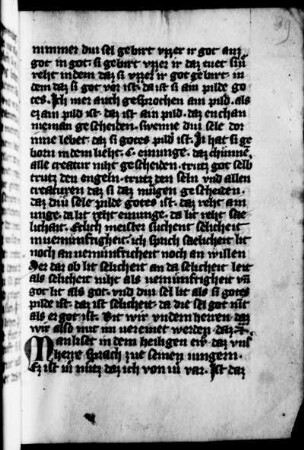 nimmer diu sel gebirt vzzer ir got auz
got in got. si gebirt vzzer ir daz enet sin
reht in dem daz si vzzer ir got gebirt. in
dem daz si got var ist. da ist si am pilde go
tes. Ich mer auch gesprochen am pild. als
ez am pild ist. daz ist am pild. daz enchan
nieman gescheiden. swenne diu sele dor
inne lebet. daz si gotes pild ist. In hat si ge
born in dem lieht.
alle creatur niht gescheiden. trutz got selb
trutz den engeln. trutz den seln vnd allen
creaturen daz si daz mugen gescheiden.
daz diu sele pilde gotes ist. daz reht am
unge. da lit reht einunge. da lit reht sae
lichait. Etlich meister suchent selicheit
in vernunftigheit. ich sprich saelicheit lit
noch an vernunfticheit noch an willen
Mer daz ob lit selicheit an da selicheit leit
als selicheit niht als vernunftigheit vn
got lit als got. vnd diu sel lit als si gotes
pilde ist. da ist selicheit da die sel got nist
als er got ist. Bit wir vndern herren daz
wir also mit im vereinet werden. daz
Man list in dem heiligen ew. daz vns
herre sprach zue seinen iungern.
Ez ist iu nutz daz ich von iu var. Ist daz